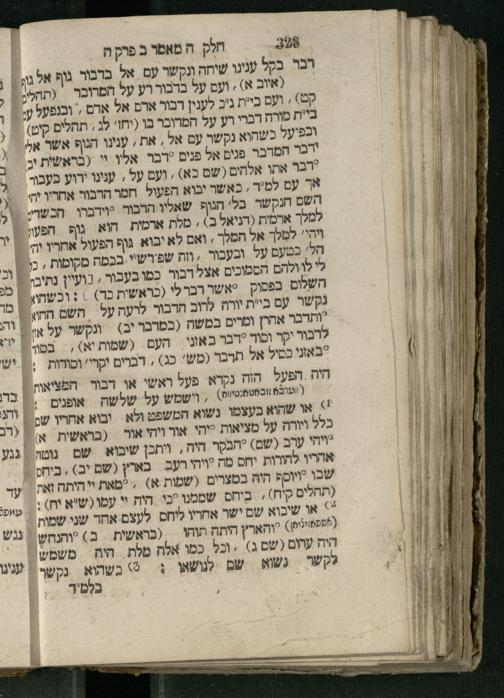 328 חלק ה מאמר ב פרק ה
דבר בקל ענינו שיחה ונקשר עם אל בדבור גוף אל גוף
(איוב א), ועם על בדבור רע על המדובר (תהלים
קט), ועם בי״ת ג״כ לענין דבור אדם אל אדם, ובנפעל עם
בי״ת מורה דברי רע על המדובר בו (יחז׳ לג, תהלים קיט)
ובפיעל כשהוא נקשר עם אל, את, ענינו הגוף אשר אליו
ידבר המדבר פנים אל פנים °דבר אליו יי (בראשית יב
°דבר אתו אלהים (שם כא), ועם על, ענינו ידוע בעבור
אך עם למ״ד, כאשר יבוא הפעול חמר הדבור אחריו יהי
השם הנקשר בל׳ הגוף שאליו הדבור °וידברו הכשדים
למלך ארמית (דניאל ב), מלת ארמית הוא גוף הפעול
ויהי׳ למלך אל המלך, ואם לא יבוא גוף הפעול אחריו יהי׳
הל׳ כטעם על ובעבור, וזה שפירש״י בכמה מקומות, כל
לי לו ולהם הסמוכים אצל דבור כמו בעבור, [ועיין נתיבות
השלום בפסוק °אשר דבר לי (בראשית כד)] : וכשהוא
נקשר עם בי״ת יורה לרוב הדבור לרעה על השם ההוא
°ותדבר אהרן ומרים במשה (במדבר יב) ונקשר על און
לדבור יקר וסוד °דבר באזני העם (שמות יא), בסוד
°באזני כסיל אל תדבר (מש׳ כג), דברים יקרי׳ וסודות :
היה הפעל הזה נקרא פעל ראשי או דבור המציאות
, וישמש על שלשה אופנים :
1) או שהוא בעצמו נשוא המשפט ולא יבוא אחריו שם
כלל ויורה על מציאות °יהי אור ויהי אור (בראשית א)
°ויהי ערב (שם) °הבקר היה, ויתכן שיבוא שם נוטה
אחריו להורות יחס מה °ויהי רעב בארץ (שם יב), ביחס
שבו °ויוסף היה במצרים (שמות א), °מאת יי היתה זאת
(תהלים קיח), ביחס שממנו °כי היה יי עמו (ש״א יח) :
2) או שיבוא שם ישר אחריו ליחס לעצם אחד שני שמות
°והארץ היתה תוהו (בראשית ב) °והנחש
היה ערום (שם ג), וכל כמו אלה מלת היה משמש
לקשר נשוא שם לנושאו : 3) כשהוא נקשר
בלמ״ד